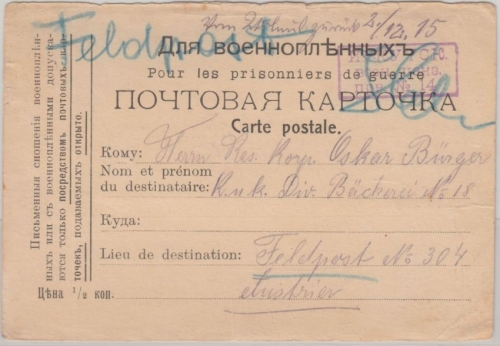 Feldpost
2/12. 15
Для военноплѣнныхъ
Pour les prisonniers de guerre
ПОЧТОВАЯ КАРТОЧКА
Carte postale.
Кому: Herrn Res. Oskar Bürger
Nom et prénom
du destinataire: K. u. k. Div. Bäckerei No 18
Куда:
Lieu de destination: Feldpost No 304
Austrien
Письменныя сношенія военноплѣн-
ныхъ или съ военноплѣнными допуска-
ются только посредствомъ почтовыхъ кар-
точекъ, подаваемыхъ открыто.
Цѣна 1/2 коп.